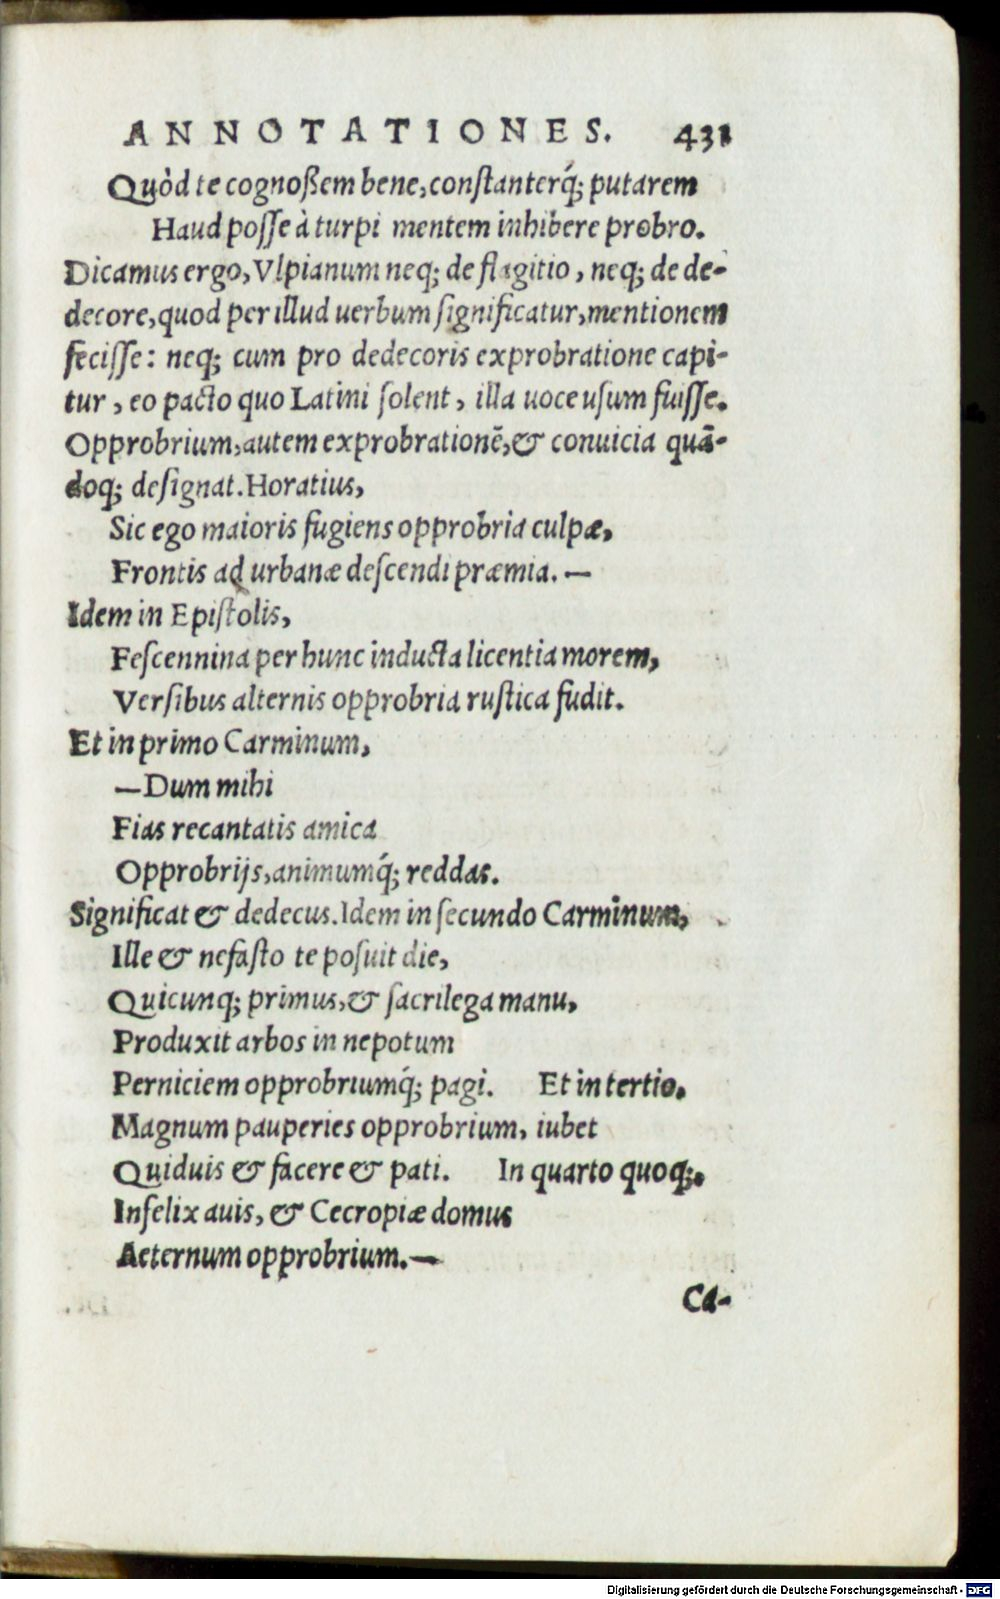 ANNOTATIONES. 431
Quòd te cognoßem bene, constanterq́; putarem
Haud posse à turpi mentem inhibere probro.
Dicamus ergo, Vlpianum neq; de flagitio, neq; de de-
decore, quod per illud uerbum significatur, mentionem
fecisse: neq; cum pro dedecoris exprobratione capi-
tur, eo pacto quo Latini solent, illa uoce usum fuisse.
Opprobrium, autem exprobrationē, & conuicia quā-
doq; designat. Horatius,
Sic ego maioris fugiens opprobria culpæ,
Frontis ad urbanæ descendi præmia. —
Idem in Epistolis,
Fescennina per hunc inducta licentia morem,
Versibus alternis opprobria rustica fudit.
Et in primo Carminum,
— Dum mihi
Fias recantatis amica
Opprobrijs, animumq́; reddas.
Significat & dedecus. Idem in secundo Carminum,
Ille & nefasto te posuit die,
Quicunq; primus, & sacrilega manu,
Produxit arbos in nepotum
Perniciem opprobriumq́; pagi. Et in tertio.
Magnum pauperies opprobrium, iubet
Quiduis & facere & pati. In quarto quoq;.
Infelix auis, & Cecropiæ domus
Aeternum opprobrium. —
Ca-
Digitalisierung gefördert durch die Deutsche Forschungsgemeinschaft - DFG